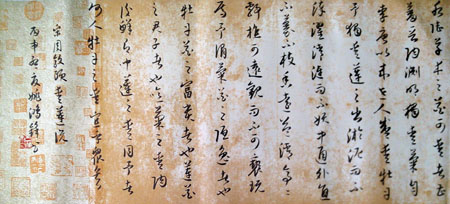 水陸草木之花可愛者甚
蕃晉陶淵明獨愛菊自
李唐以來世人甚愛牡丹
予獨愛蓮之出淤泥而不
染濯清漣而不妖中通外直
不蔓不枝香遠益清亭亭
靜植可遠觀而不可褻玩
焉予謂菊花之隱逸者也
牡丹花之富貴者也蓮花
之君子者也噫菊之愛陶
後鮮有聞蓮之愛同予者
何人牡丹之愛宜乎眾矣
宋周敦頤愛蓮說
丙申